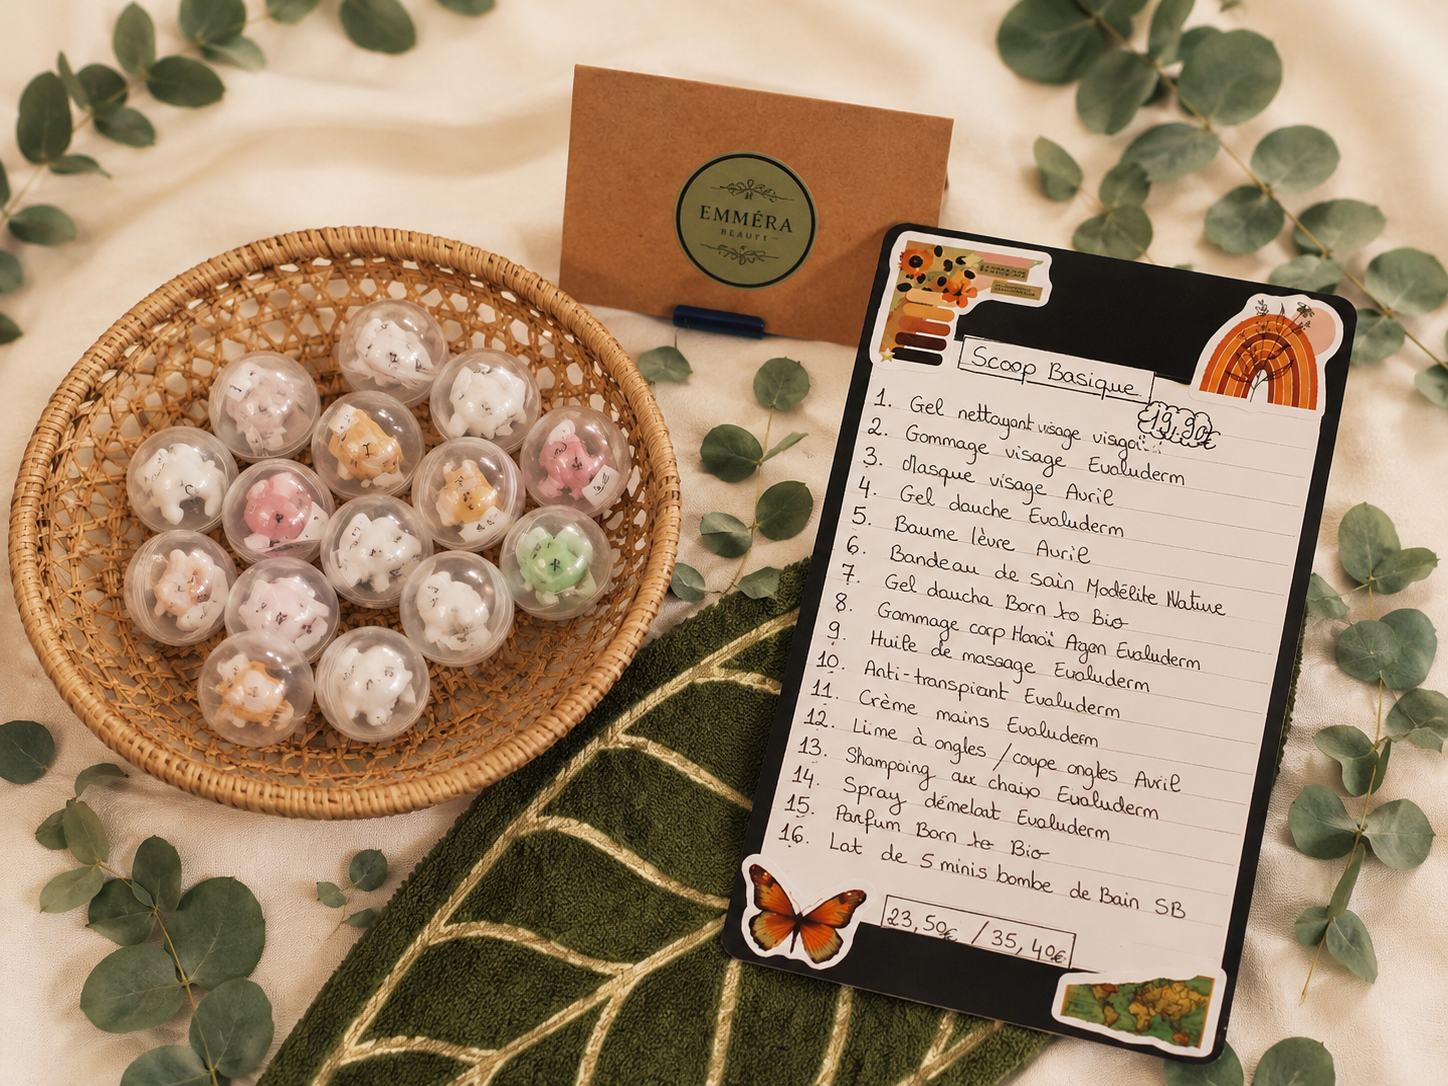 EMMÉRA
BEAUTY
Scoop Basique
19,90€
1. Gel nettoyant visage visgoï
2. Gommage visage Evaluderm
3. Masque visage Avril
4. Gel dauche Evaluderm
5. Baume lèvre Avril
6. Bandeau de sain Modélite Nature
7. Gel daucha Born to Bio
8. Gammage corp Hanoï Agan Evaluderm
9. Huile de massage Evaluderm
10. Anti-transpirant Evaluderm
11. Crème mains Evaluderm
12. Lime à ongles / coupe ongles Avril
13. Shampoing aux chaix Evaluderm
14. Spray démelait Evaluderm
15. Parfum Born to Bio
16. Lat de 5 minis bombe de Bain SB
23,50€ / 35,40€